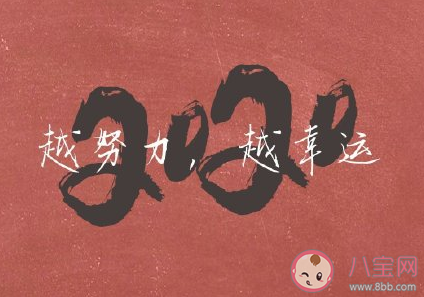 2020
越努力，越幸运
八宝网
www.8bb.com